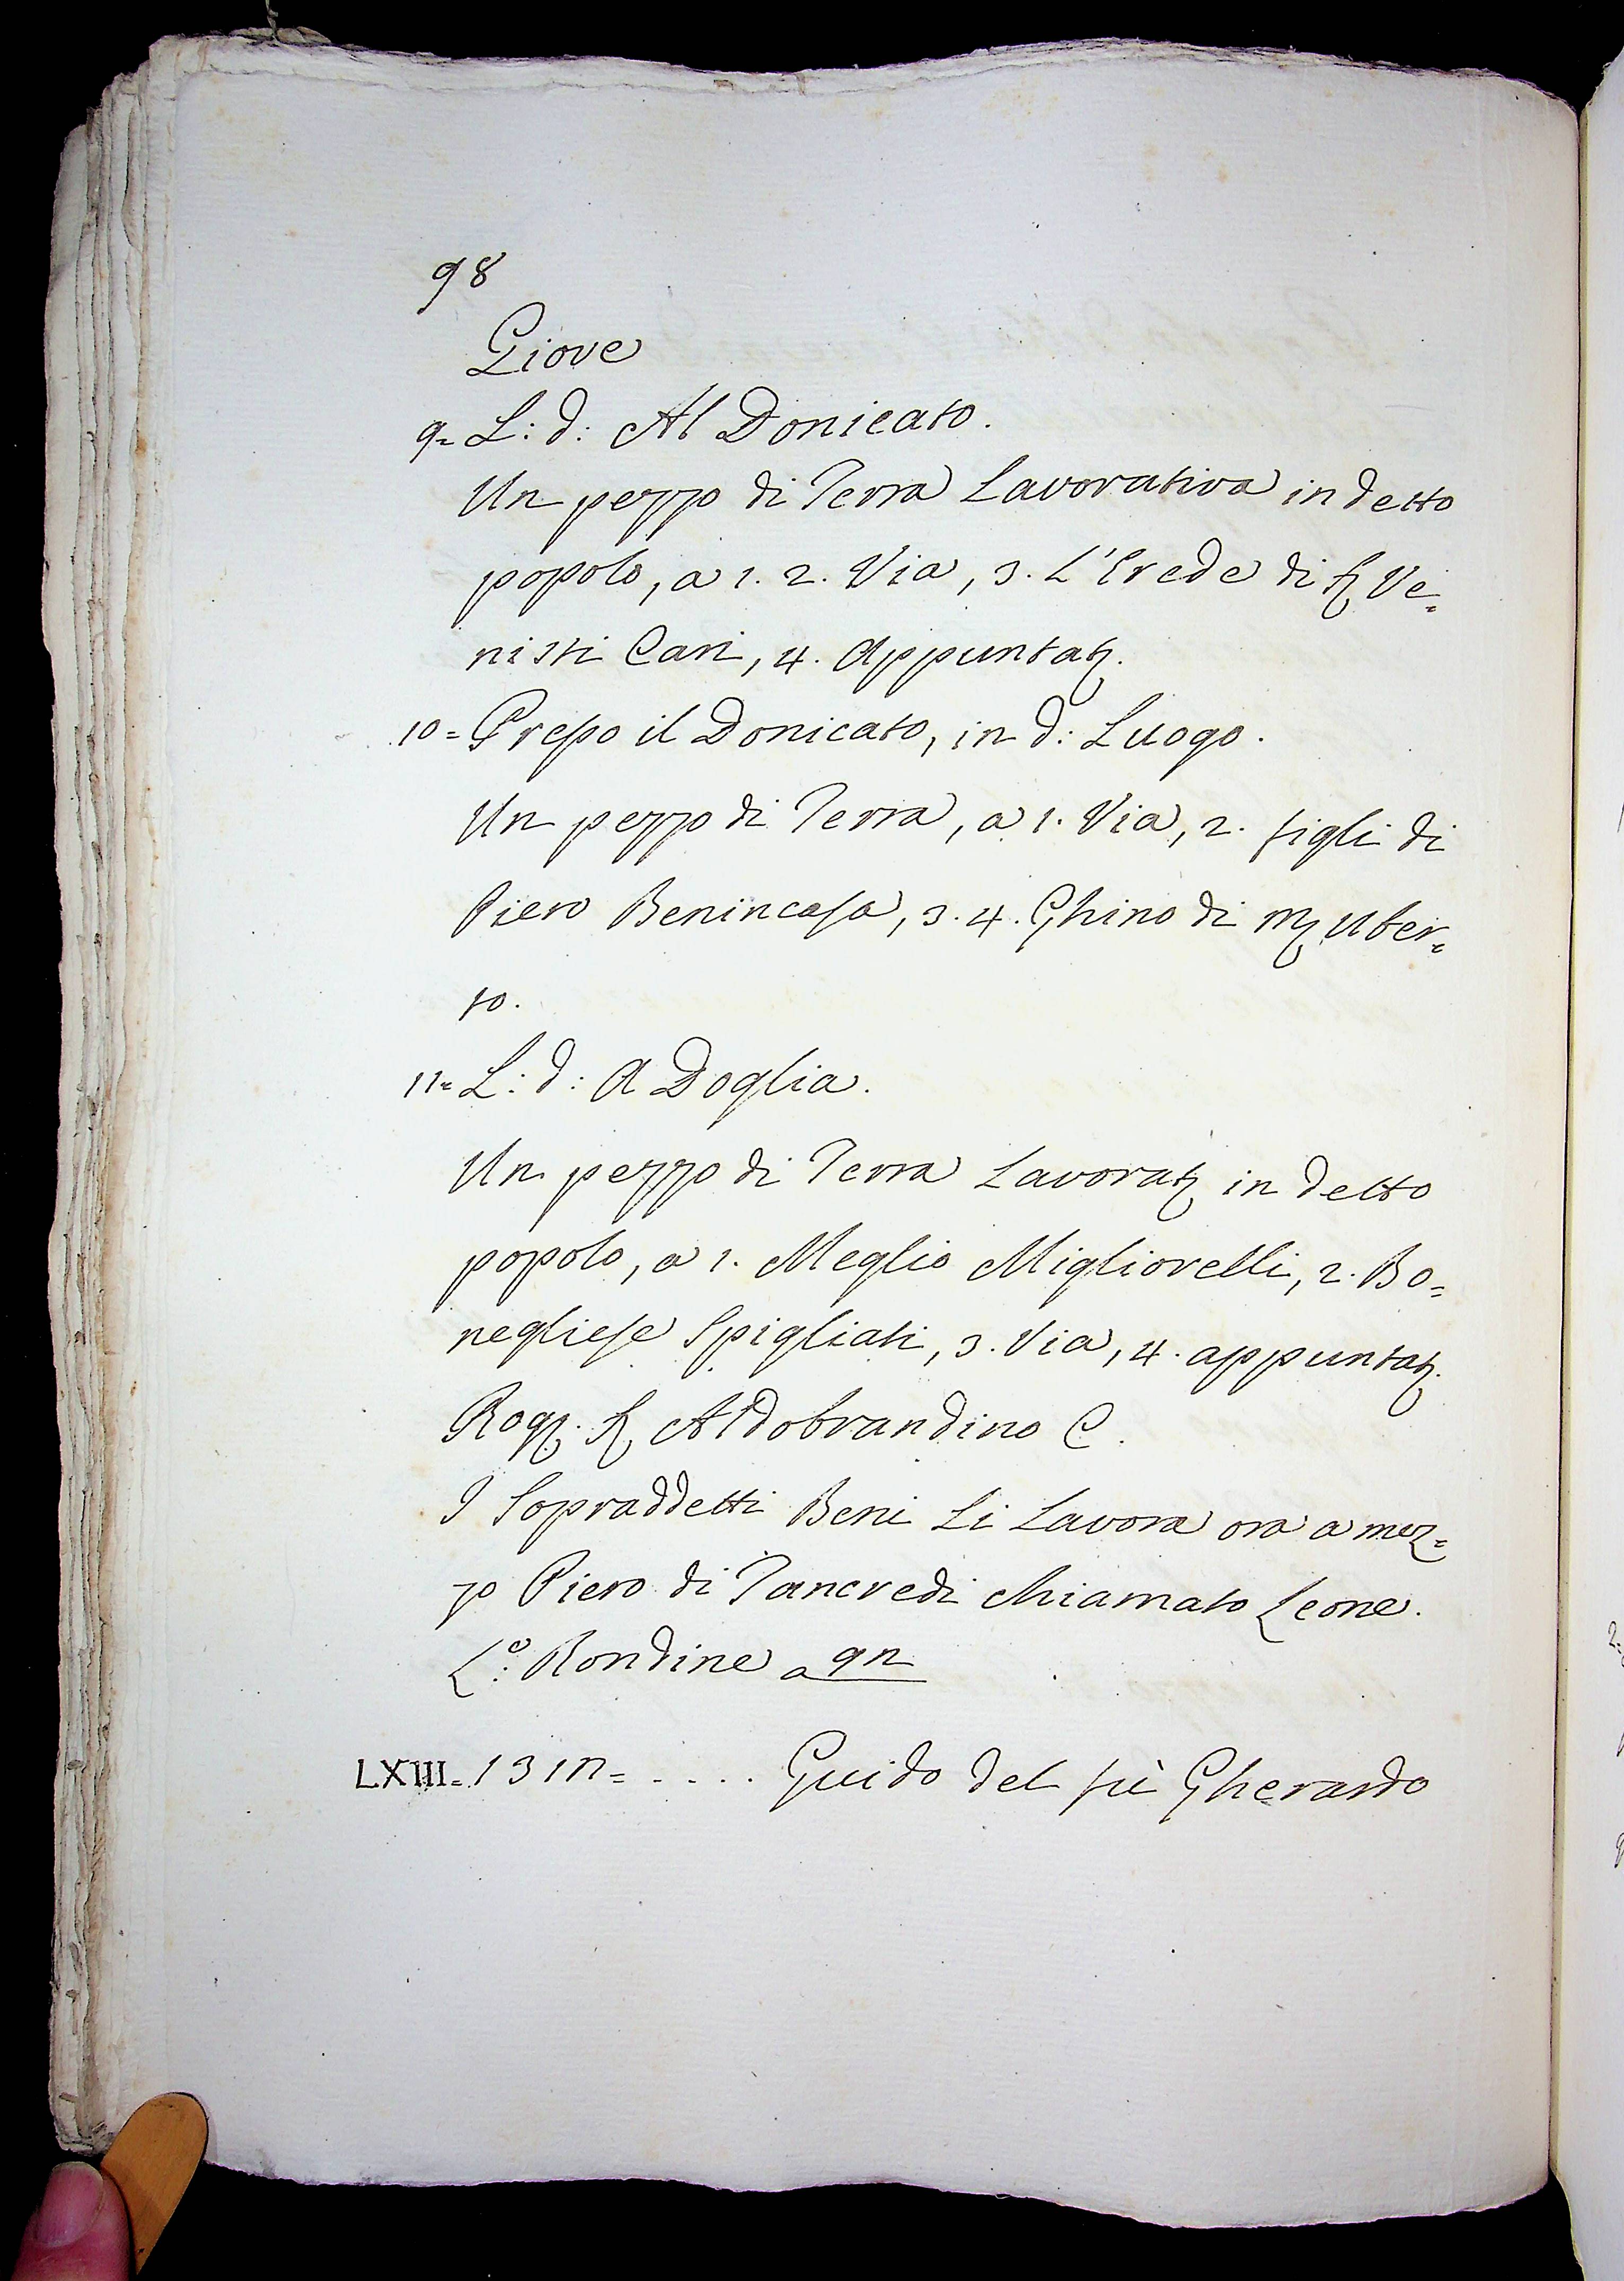 98
Giove
9= L: d: Al Donicato.
Un pezzo di Terra Lavorativa in detto
popolo, a 1. 2. Via, 3. L'Erede di S. Ve=
nisti Cari, 4. Appuntat.
10= Presso il Donicato, in d: Luogo.
Un pezzo di Terra, a 1. Via, 2. figli di
Piero Benincasa, 3. 4. Ghino di M. Uber=
to.
11= L: d: A Doglia.
Un pezzo di Terra Lavorat. in detto
popolo, a 1. Meglio Migliorelli, 2. Bo=
negliese Spigliati, 3. Via, 4. appuntat.
Rog. S. Aldobrandino C.
I Sopraddetti Beni Li Lavora ora a mez=
zo Piero di Tancredi chiamato Leone.
L.º: Rondine a 92
LXIII= 1312= .... Guido del fù Gherardo